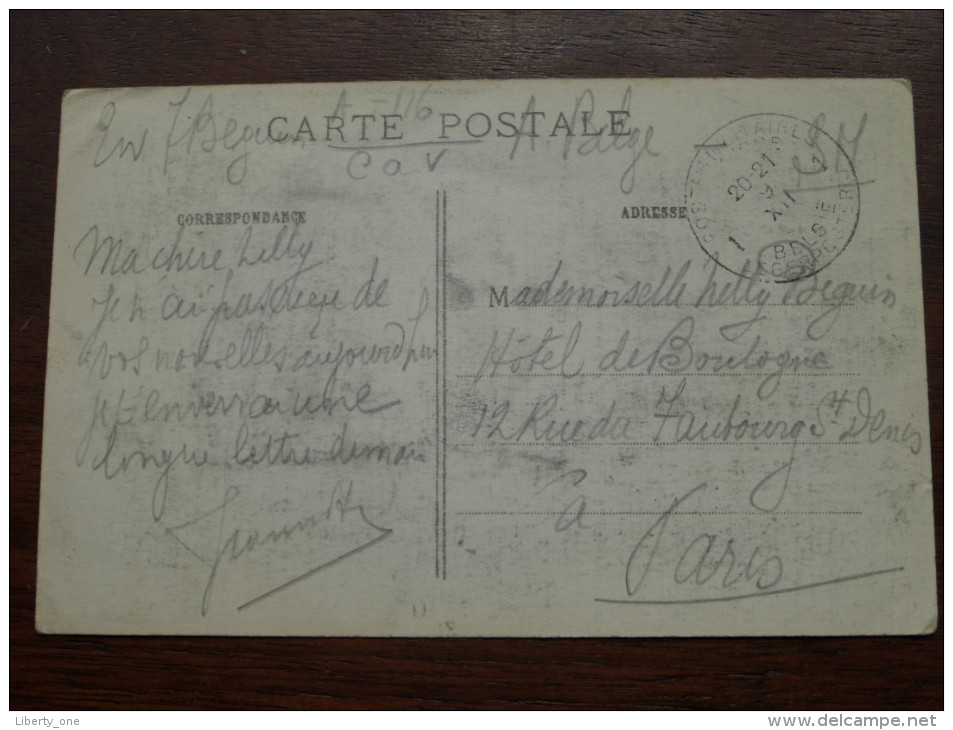 Env J Beguin A-116
CARTE POSTALE
Cav A. Belge S M
20-21
9
XII
1
BELGIE
BELGIQUE
CORRESPONDANCE
ADRESSE
Ma chère Nelly
Je n'ai pas reçu de
vos nouvelles aujourd'hui
je t'enverrai une
longue lettre demain
Mademoiselle Nelly Beguin
Hôtel de Boulogne
12 Rue du Faubourg St Denis
à
Paris
Liberty_one
www.delcampe.net